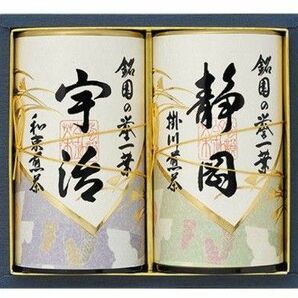 銘園の誉一葉
静岡
掛川煎茶
銘園の誉一葉
宇治
和束煎茶